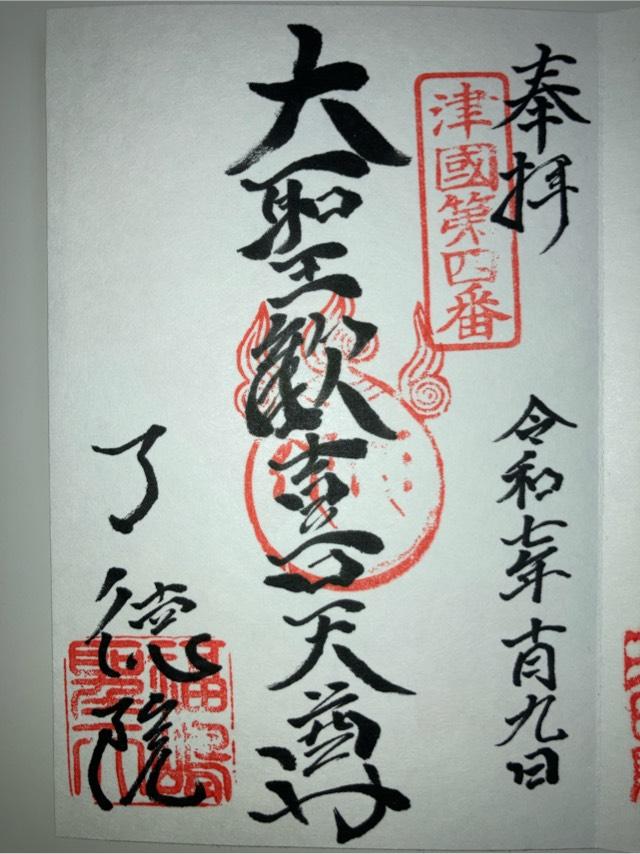 奉拝
令和七年十月九日
津國第四番
大聖歓喜天尊
了徳院
福嶋
聖天